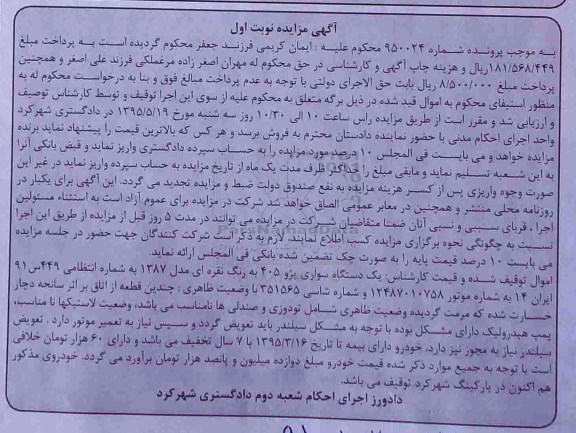 آگهی مزایده نوبت اول
به موجب پرونده شماره ۹۵۰۰۲۴ محکوم علیه : ایمان کریمی فرزند جعفر محکوم گردیده است به پرداخت مبلغ
۱۸۱/۵۶۸/۴۴۹ریال و هزینه چاپ آگهی و کارشناسی در حق محکوم له مهران اصغر زاده مرغملکی فرزند علی اصغر و همچنین
پرداخت مبلغ ۸/۵۰۰/۰۰۰ ریال بابت حق الاجرای دولتی با توجه به عدم پرداخت مبالغ فوق و بنا به درخواست محکوم له به
منظور استیفای محکوم به اموال قید شده در ذیل برگه متعلق به محکوم علیه از سوی این اجرا توقیف و توسط کارشناس توصیف
و ارزیابی شد و مقرر است از طریق مزایده راس ساعت ۱۰ الی ۱۰/۳۰ روز سه شنبه مورخ ۱۳۹۵/۵/۱۹ در دادگستری شهرکرد
واحد اجرای احکام مدنی با حضور نماینده دادستان محترم به فروش برسد و هر کس که بالاترین قیمت را پیشنهاد نماید برنده
مزایده خواهد و می بایست فی المجلس ۱۰ درصد مورد مزایده را به حساب سپرده دادگستری واریز نماید و قبض بانکی آنرا
به این شعبه تسلیم نماید و مابقی مبلغ را حداکثر ظرف مدت یک ماه از تاریخ مزایده به حساب سپرده واریز نماید در غیر این
صورت وجوه واریزی پس از کسر هزینه مزایده به نفع صندوق دولت ضبط و مزایده تجدید می گردد. این آگهی برای یکبار در
روزنامه محلی منتشر و همچنین در معابر عمومی الصاق خواهد شد شرکت در مزایده برای عموم آزاد است به استثناء مسئولین
اجرا ، قربای سببی و نسبی آنان ضمنا متقاضیان شرکت در مزایده می توانند در مدت ۵ روز قبل از مزایده از طریق این اجرا
نسبت به چگونگی نحوه برگزاری مزایده کسب اطلاع نمایند. لازم به ذکر است شرکت کنندگان جهت حضور در جلسه مزایده
می بایست ۱۰ درصد قیمت پایه را به صورت چک تضمین شده بانکی فی المجلس ارائه نماید.
اموال توقیف شده و قیمت کارشناس: یک دستگاه سواری پژو ۴۰۵ به رنگ نقره ای مدل ۱۳۸۷ به شماره انتظامی ۴۴۹س۹۱
ایران ۱۴ به شماره موتور ۱۲۴۸۷۰۱۰۷۵۸ و شماره شاسی ۳۵۱۵۶۵ با وضعیت ظاهری : چندین قطعه از اتاق بر اثر سانحه دچار
خسارت شده که مرمت گردیده وضعیت ظاهری شامل تودوزی و صندلی ها نامناسب می باشد، وضعیت لاستیکها نا مناسب،
پمپ هیدرولیک دارای مشکل بوده با توجه به مشکل سیلندر باید تعویض گردد و سپس نیاز به تعمیر موتور دارد . تعویض
سیلندر نیاز به مجوز نیز دارد. خودرو دارای بیمه تا تاریخ ۱۳۹۵/۳/۱۶ با ۷ سال تخفیف می باشد و دارای ۶۰ هزار تومان خلافی
است با توجه به جمیع موارد ذکر شده قیمت خودرو مبلغ دوازده میلیون و پانصد هزار تومان برآورد می گردد. خودروی مذکور
هم اکنون در پارکینگ شهرکرد توقیف می باشد.
دادورز اجرای احکام شعبه دوم دادگستری شهرکرد